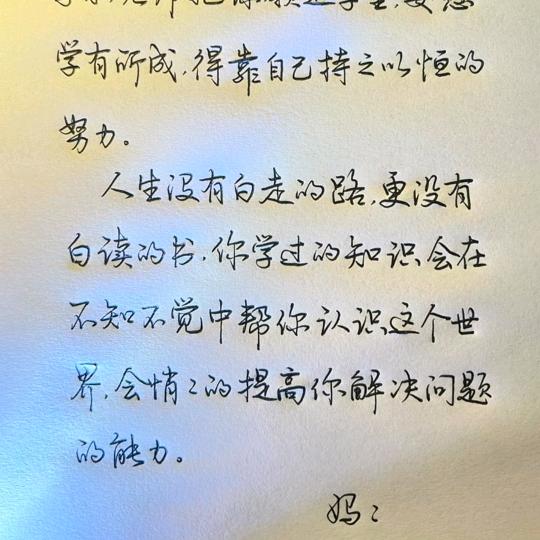 学有所成,得靠自己持之以恒的
努力。
人生没有白走的路,更没有
白读的书,你学过的知识会在
不知不觉中帮你认识这个世
界,会悄〻的提高你解决问题
的能力。
妈〻